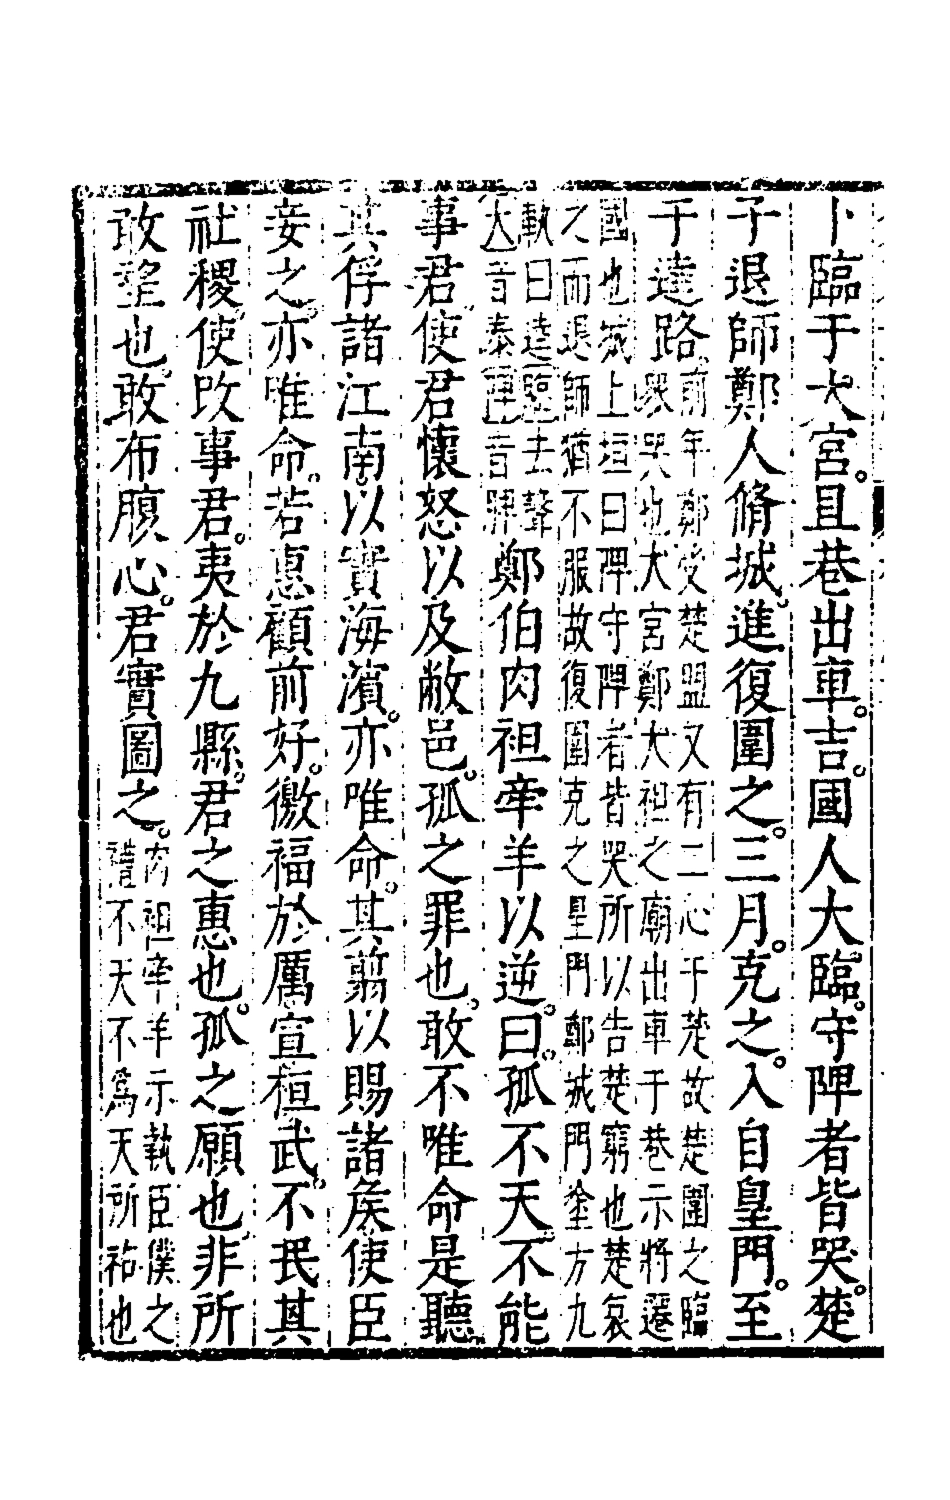 卜臨于大宮。且巷出車。吉。國人大臨。守陴者皆哭。楚
子退師鄭人脩城。進復圍之。三月。克之。入自皇門。至
于逵路。
前年鄭受楚盟又有二心于楚故楚圍之臨
眾哭也大宮鄭大祖之廟出車于巷示將遷
國也城上垣曰陴守陴者皆哭所以告楚窮也楚哀
之而退師猶不服故復圍克之皇門鄭城門塗方九
軌曰逵臨去聲
大音泰陴音脾
鄭伯肉袒牽羊以逆。曰。孤不天。不能
事君。使君懷怒以及敝邑。孤之罪也。敢不唯命是聽。
其俘諸江南。以實海濱。亦唯命。其翦以賜諸侯使臣
妾之。亦唯命。若惠顧前好。徼福於厲宣桓武。不泯其
社稷。使改事君。夷於九縣。君之惠也。孤之願也。非所
敢望也。敢布腹心。君實圖之。
肉袒牽羊示執臣僕之
禮不天不為天所祐也